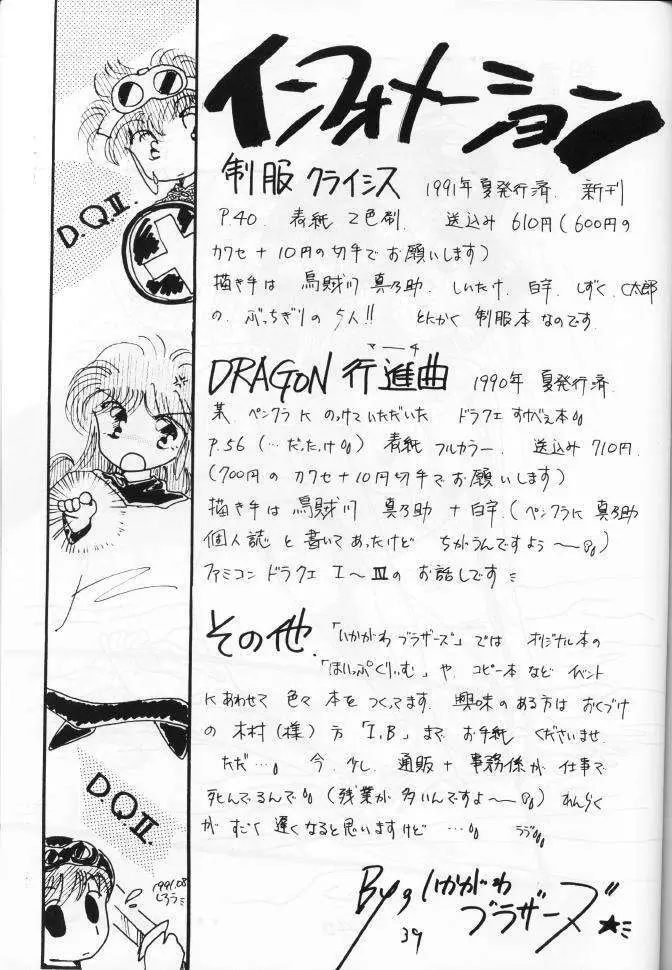 インフォメーション
制服 クライシス 1991年 夏発行済. 新刊
P.40. 表紙 2色刷. 送込み 610円(600円の
カワセ + 10円の切手で お願いします)
描き手は 烏賊川 真乃助. しいたけ. 白宇. しずく. C太郎
の. ぶっちぎりの 5人!! とにかく 制服本 なのです.
マーチ
DRAGON 行進曲 1990年 夏発行済.
某. ペンクラに のっけていただいた ドラクエ すけべえ本
P.56 (…だったけ) 表紙 フルカラー. 送込み 710円.
(700円の カワセ + 10円切手で お願いします)
描き手は 烏賊川 真乃助 + 白宇. (ペンクラに 真乃助
個人誌 と 書いて あったけど ちがうんですよう〜)
ファミコン ドラクエ I〜III の お話しです
その他.「いかがわ ブラザーズ」では オリジナル本の
「ほいっぷくりぃむ」や. コピー本 など イベント
にあわせて 色々 本を つくってます. 興味の ある 方は おくづけ
の 木村(様) 方 「I.B」まで お手紙 くださいませ.
ただ…。 今. 少し. 通販 + 事務係が 仕事で
死んでるんで (残業が 多いんですよ〜) れんらく
が すごく 遅くなると思いますけど …。
By いかがわ
ブラザーズ
39
D.Q.II.
D.Q.II.
1991.08
しろう